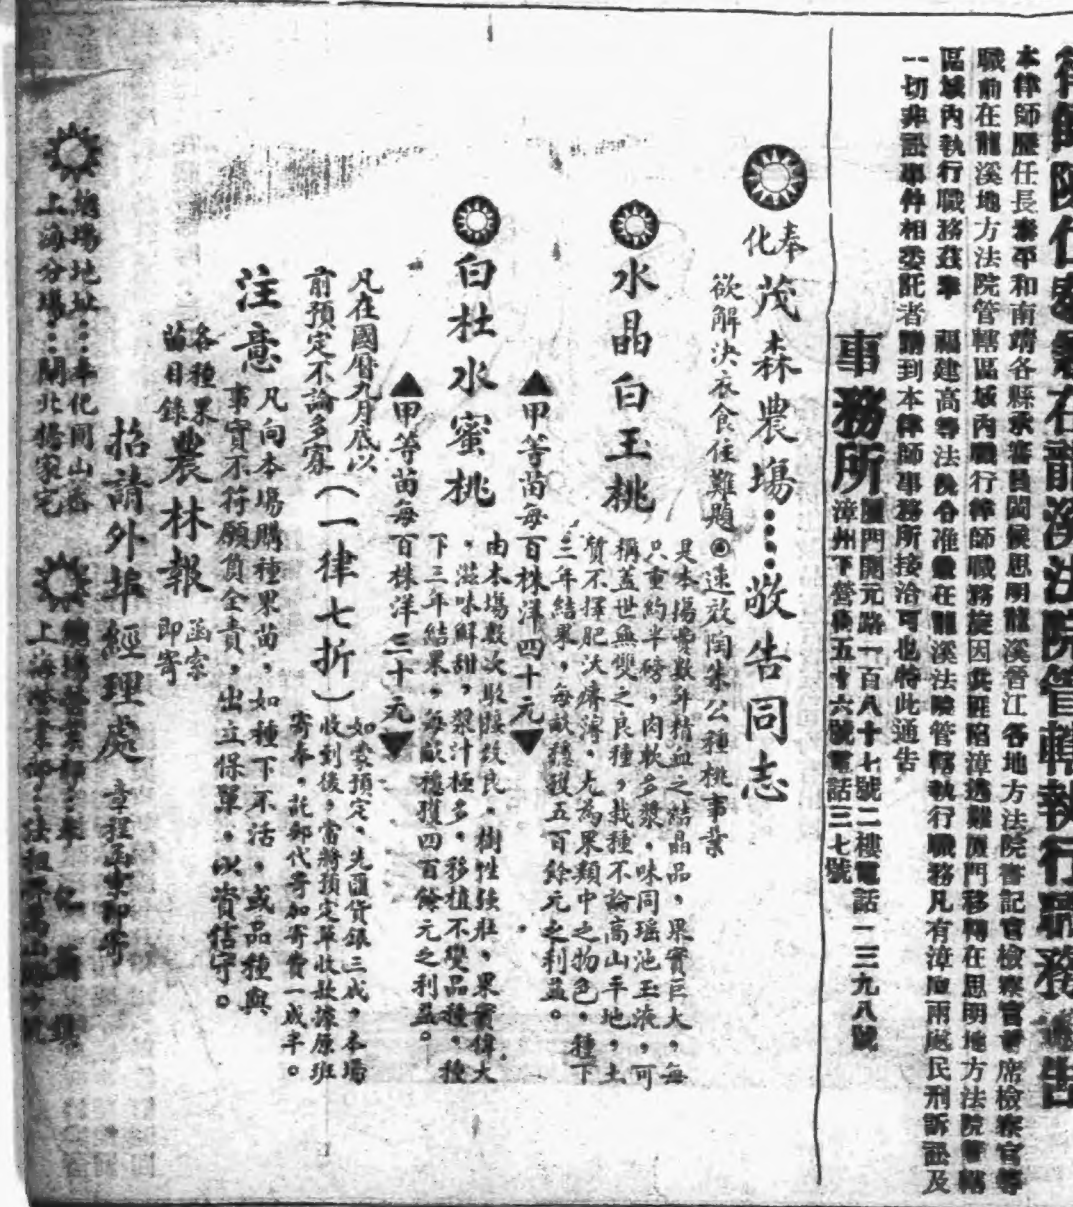 律師陳仕泰
在龍溪法院管轄執行職務通告
本律師歷任長泰平和南靖各縣承審員閩侯思明龍溪晉江各地方法院書記官檢察官首席檢察官等
職前在龍溪地方法院管轄區域內職行律師職務
因
陷漳
廈門移轉在思明地方法院管轄
區域內執行職務茲奉 福建高等法院令准兼在龍溪法院管轄執行職務凡有漳廈兩處民刑訴訟及
一切非訟事件相委託者請到本律師事務所接洽可也特此通告
事務所
廈門開元路一百八十七號二樓電話一三九八號
漳州下營後五十六號電話三七號
奉化
茂森農場⋮敬告同志
欲解決衣食住難題◉速效陶朱公種桃事業
水晶白玉桃
是本場費數升精血之結晶品,果實巨大,每
只重約半磅,肉軟多漿,味同瑤池玉液,可
稱蓋世無雙之良種,栽種不論高山平地,土
質不擇肥沃瘠薄,尤為果類中之物色,種下
三年結果,每畝穩獲五百餘元之利益。
▲甲等苗每百株洋四十元▼
白杜水蜜桃
由本場數次馴養改良,樹性強壯,果實偉大
,滋味鮮甜,漿汁極多,移植不變品種,種
下三年結果,每畝穩獲四百餘元之利益。
▲甲等苗每百株洋三十元▼
凡在國曆九月底以
前預定不論多寡
(一律七折)
如蒙預定,先匯貨銀三成,本場
收到後,當將預定單收款據原班
寄奉,託郵代寄加寄費一成半。
注意
凡向本場購種果苗,如種下不活,或品種與
事實不符願負全責,出立保單,以資信守。
各種果
苗目錄
農林報
函索
即寄
招請外埠經理處
章程函索即寄
總場地址⋮奉化同山
上海分場⋮閘北
家宅
總場營業部⋮奉化
鎮
上海
部⋮法租界